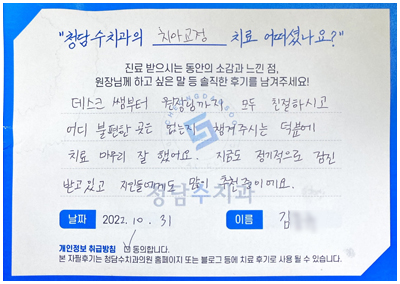 "청담수치과의 치아교정 치료 어떠셨나요?"
진료 받으시는 동안의 소감과 느낀 점,
원장님께 하고 싶은 말 등 솔직한 후기를 남겨주세요!
데스크 쌤부터 원장님까지 모두 친절하시고
어디 불편한 곳은 없는지 챙겨주시는 덕분에
치료 마무리 잘 했어요. 지금도 정기적으로 검진
받고있고 지인들에게도 많이 추천중이에요.
청담수치과
날짜 2022. 10. 31 이름 김
개인정보 취급방침 동의합니다.
본 자필후기는 청담수치과의원 홈페이지 또는 블로그 등에 치료 후기로 사용 될 수 있습니다.